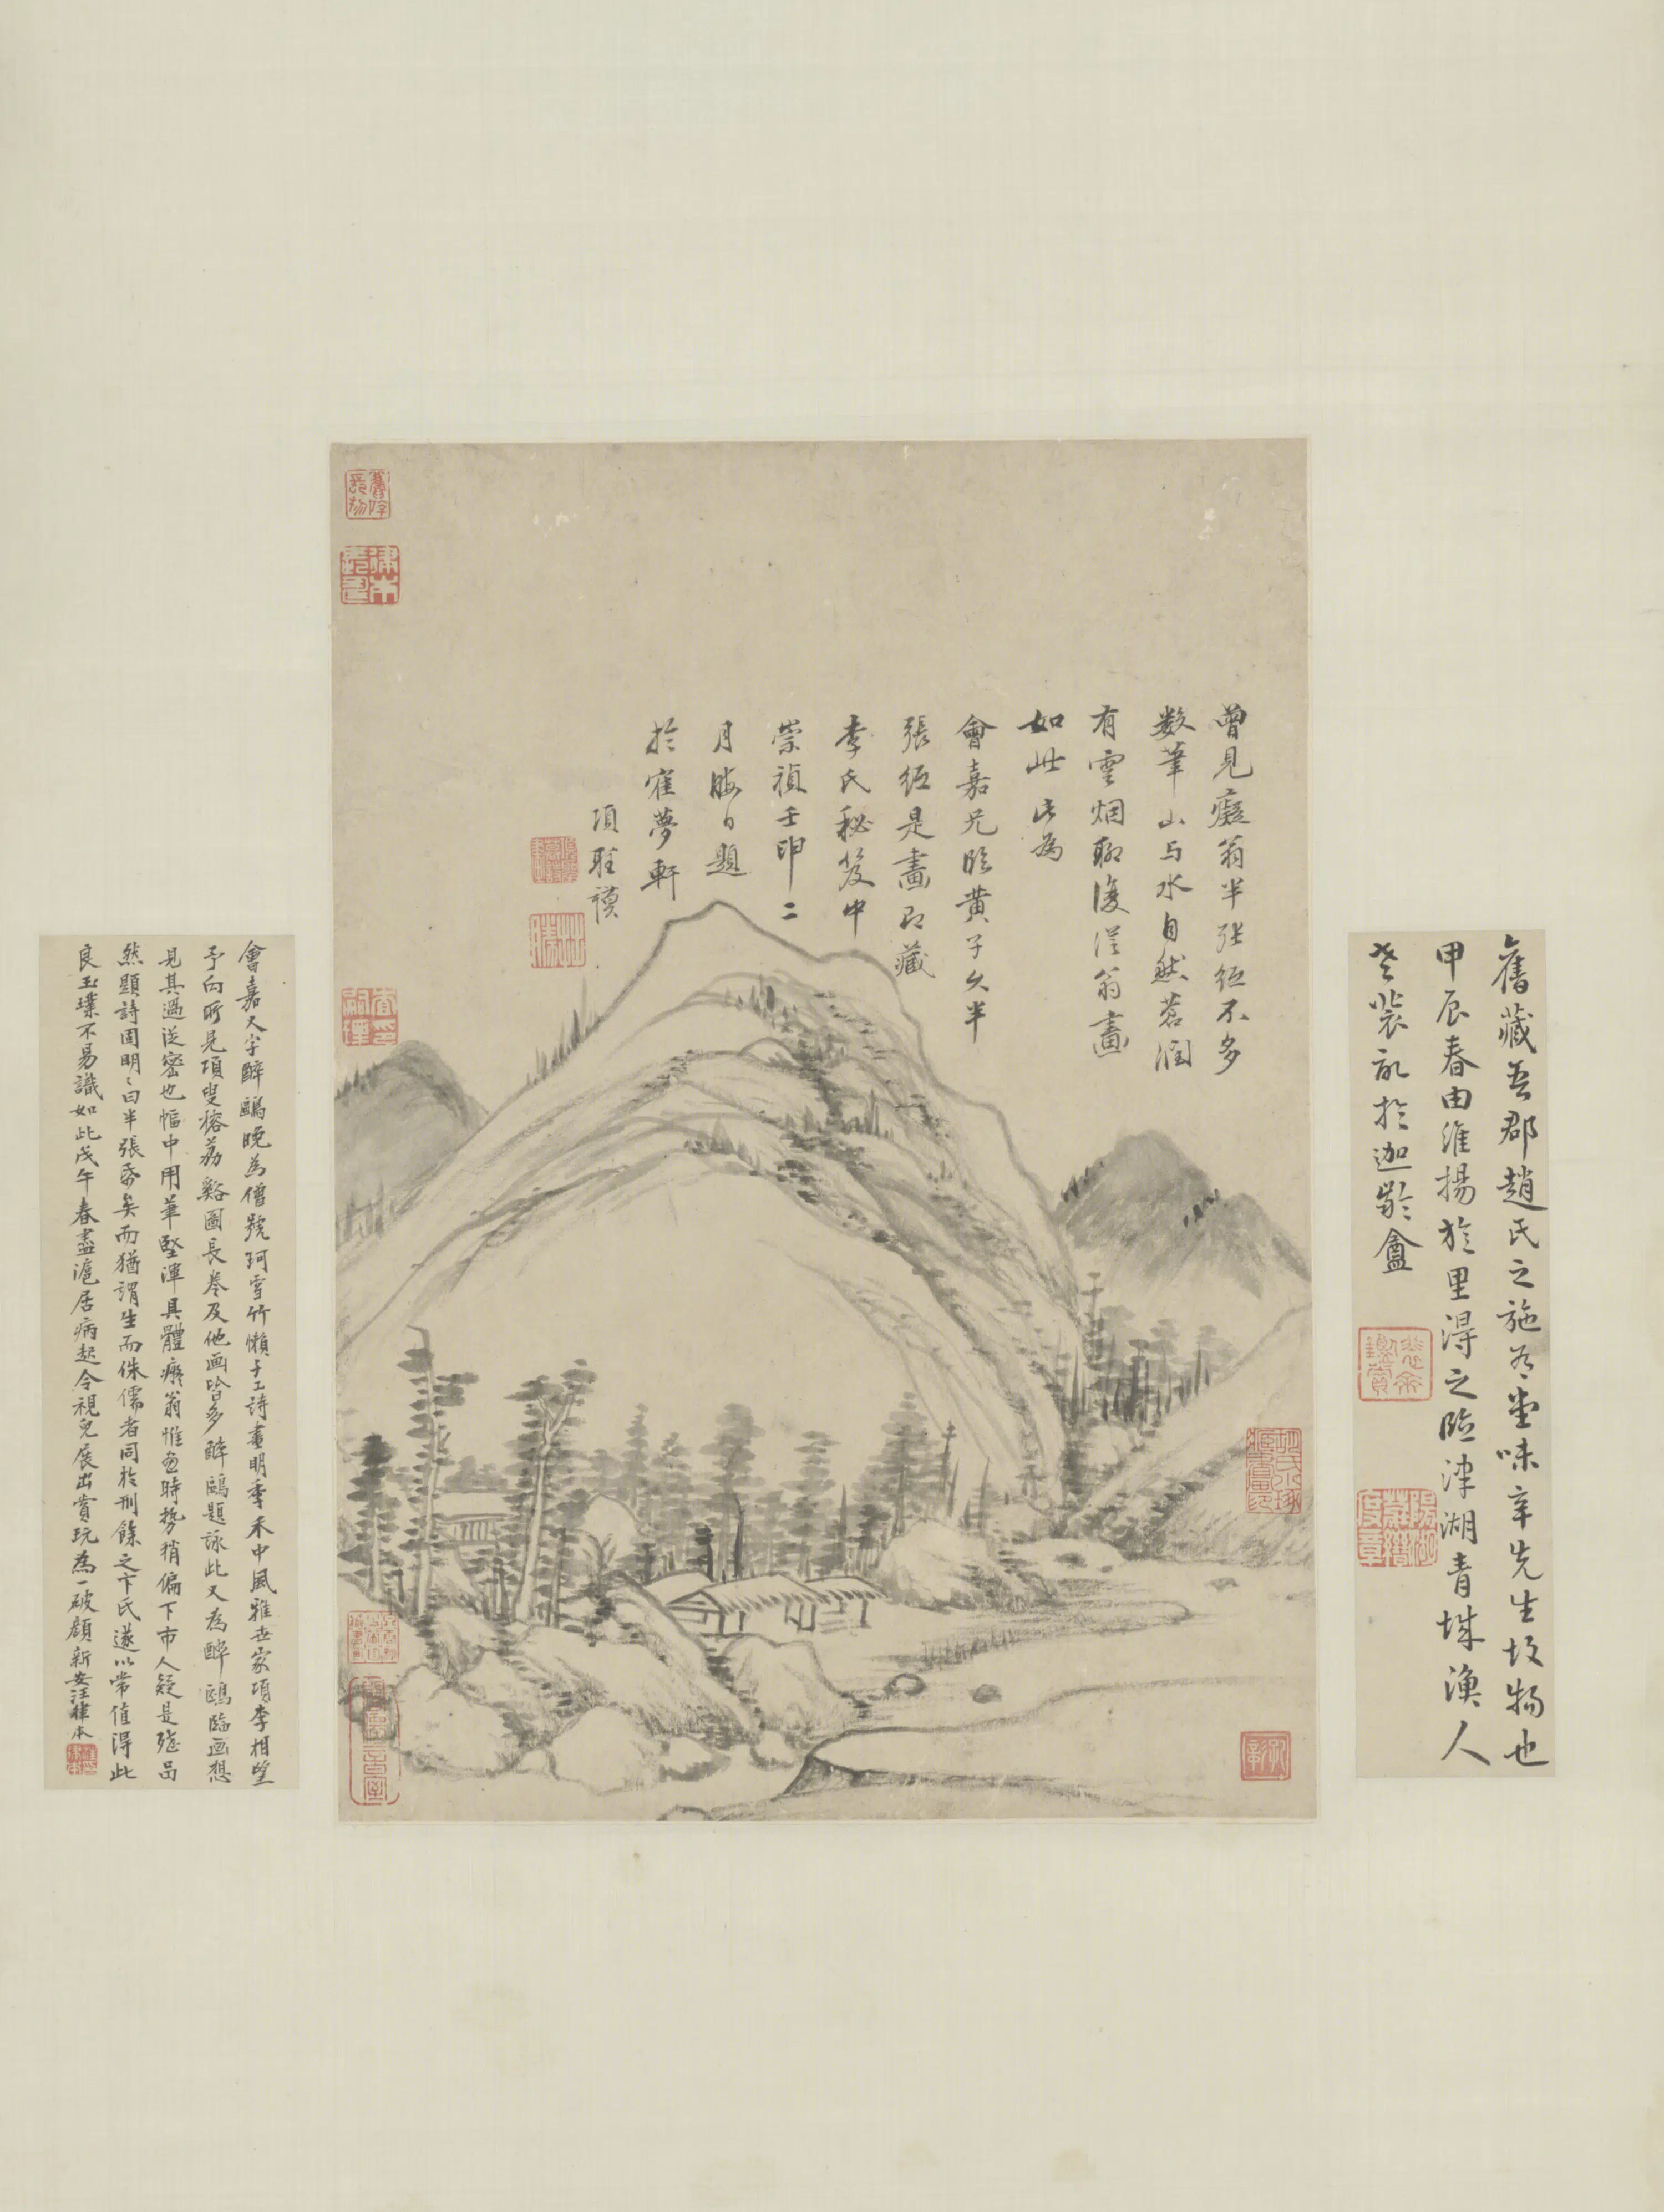 舊藏吾郡趙氏之施名堂味辛先生故物也
甲辰春由維揚於里得之臨津湖青城漁人
裝記於迦齡盦
曾見癡翁半張紙不多
数筆山与水自然蒼潤
有雲烟聊復從翁畫
如此此為
會嘉兄臨黃子久半
張紙是畫即藏
李氏秘笈中
崇禎壬申二
月晦日題
於寉夢軒
項聖謨
會嘉又字醉鷗晚為僧號珂雪竹嬾子工詩畫明季禾中風雅世家項李相望
予向所見項叟榕荔谿圖長卷及他画皆多醉鷗題詠此又為醉鷗臨画想
見其過從密也幅中用筆堅渾具體癡翁惟畫時勢稍偏下市人疑是殘品
然題詩固明〻曰半張紙矣而猶謂生而侏儒者同於刑餘之卞氏遂以常值得此
良玉璞不易識如此戊午春盡滬居病起令視兒展出賞玩為一破顔新安汪律本